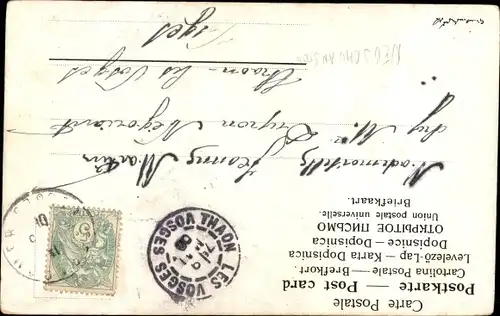 Carte Postale
Postkarte — Post card
Cartolina Postale — Brefkort.
Levelező-Lap — Karta Dopisnica
Dopisnice — Dopisnica
ОТКРЫТОЕ ПИСЬМО
Union postale universelle.
Briefkaart.
Mademoiselle Jeanne Martin
chez M. Duyron Négociant
Thaon-les-Vosges
Vosges
THAON LES VOSGES
VOSGES
5